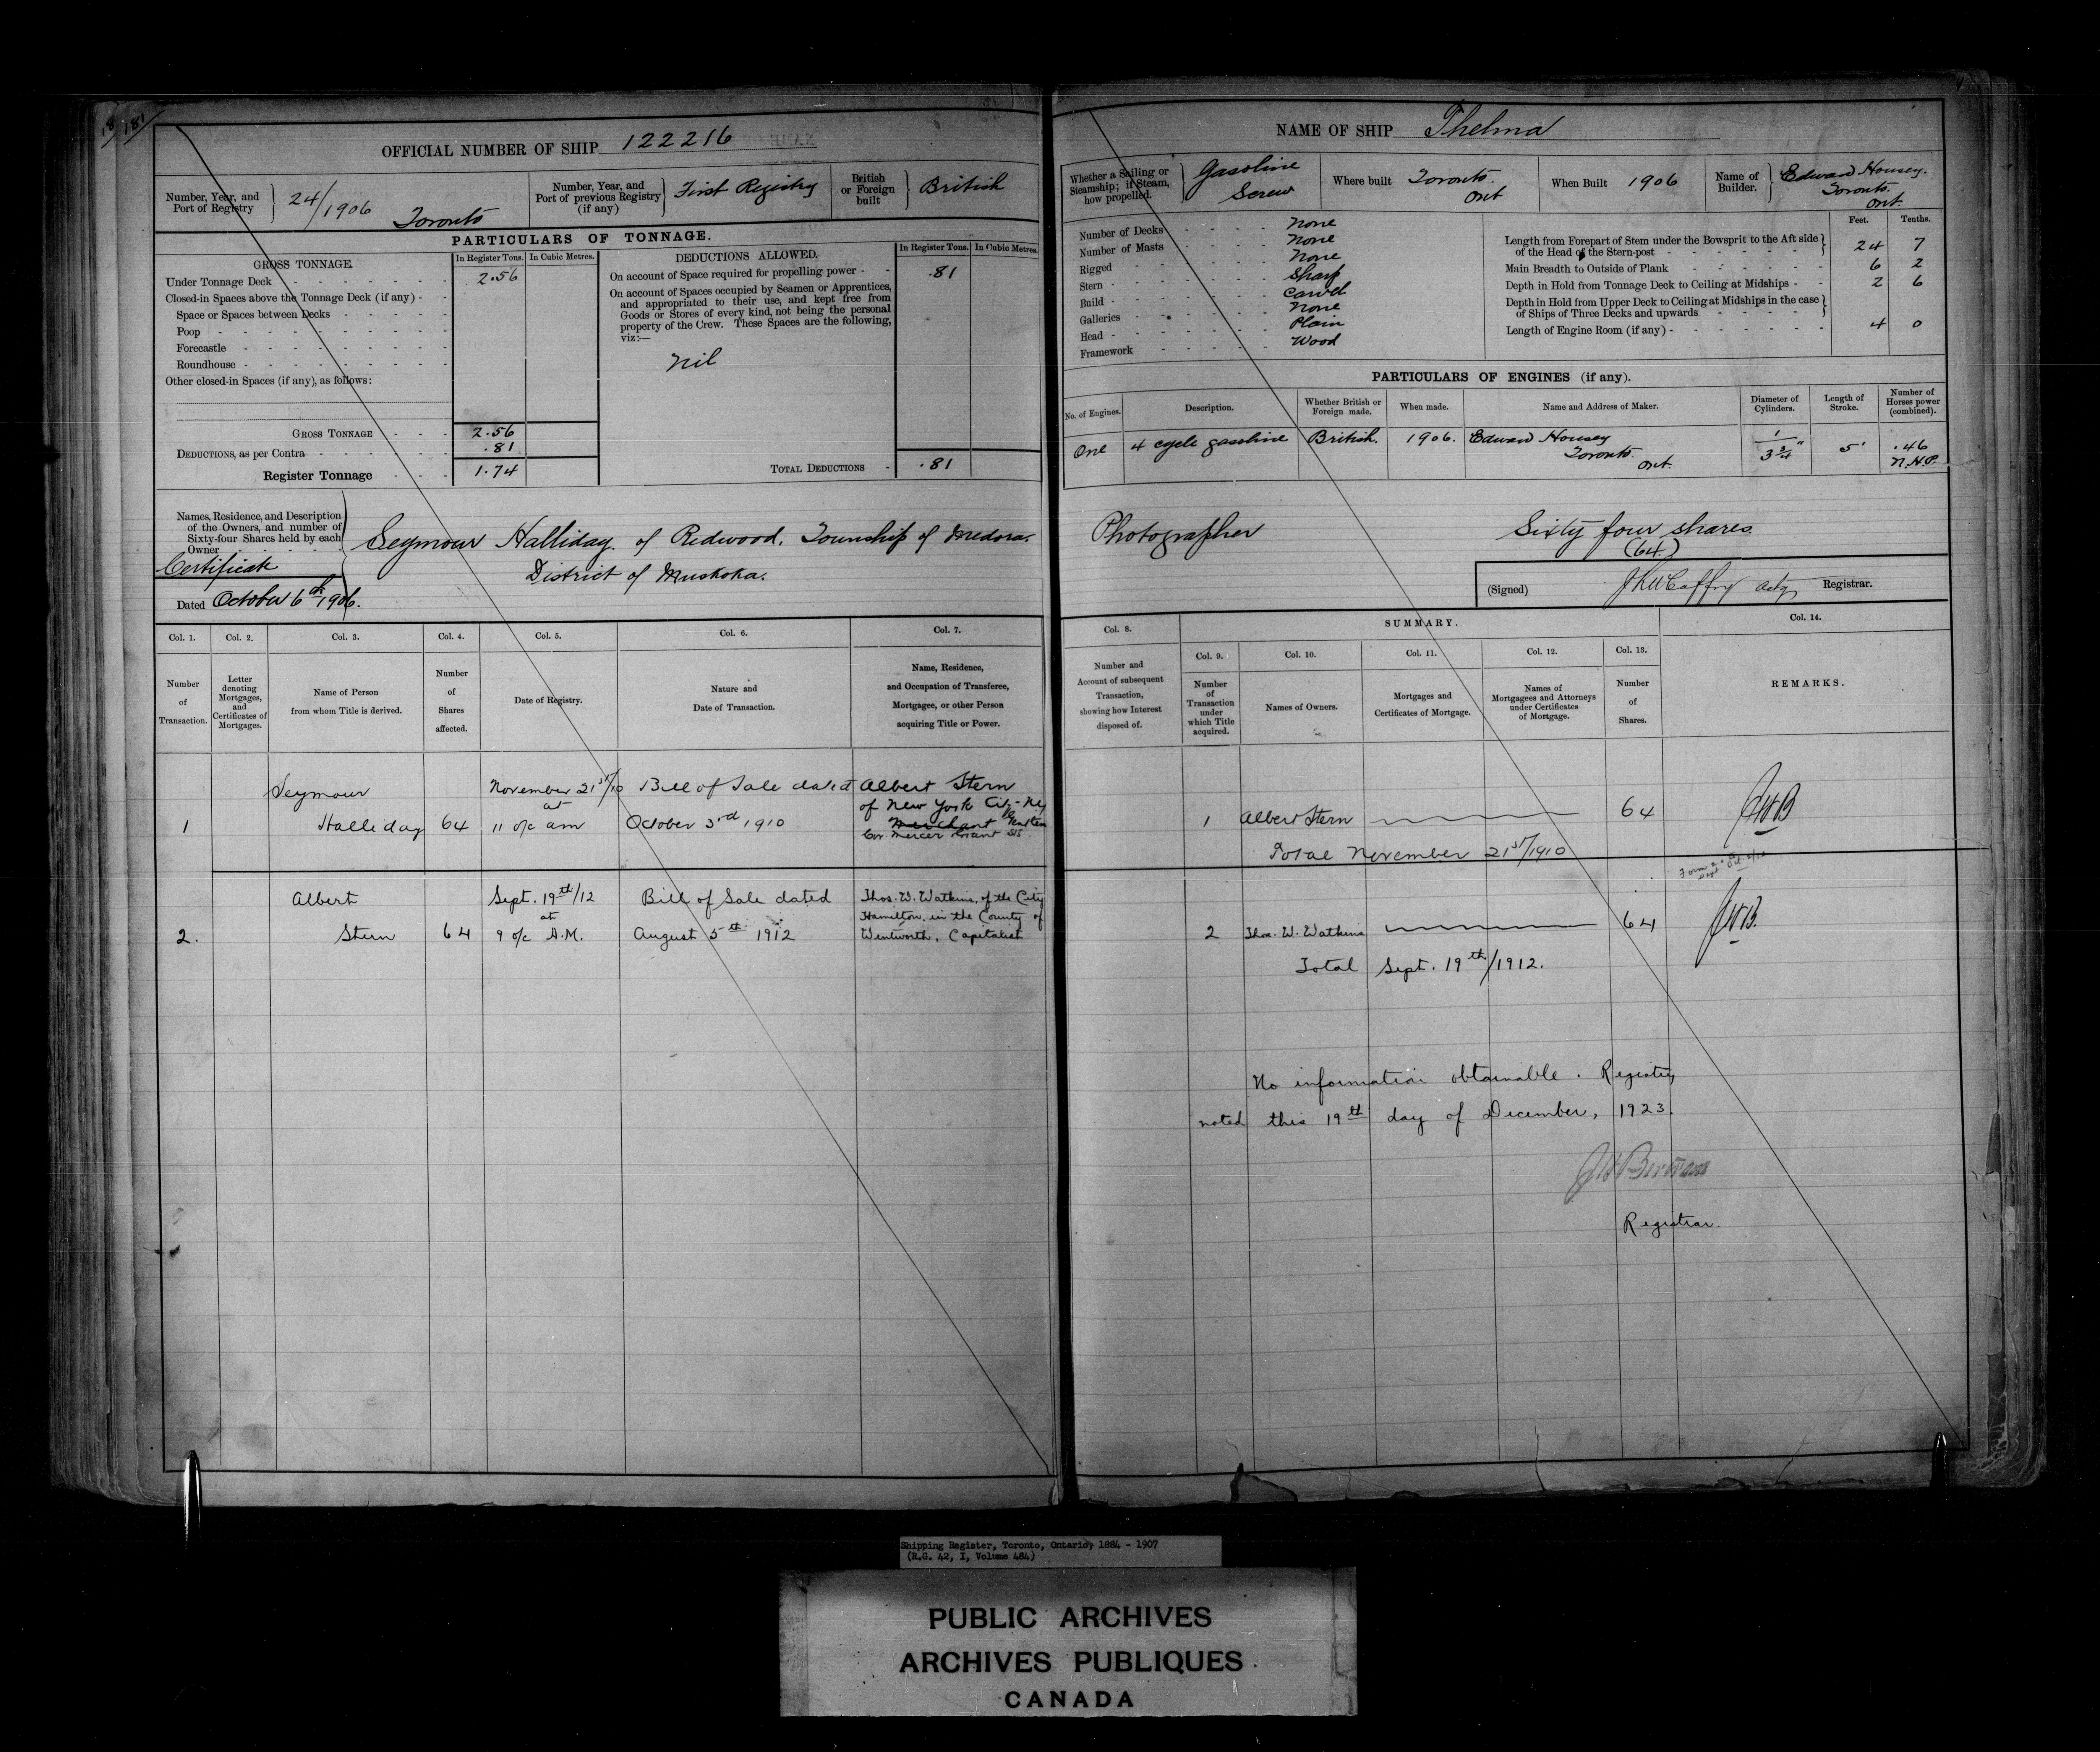 181
OFFICIAL NUMBER OF SHIP 122216
Number, Year, and Port of Registry } 24/1906 Toronto
Number, Year, and Port of previous Registry (if any) } First Registry
British or Foreign built } British
PARTICULARS OF TONNAGE.
GROSS TONNAGE. In Register Tons. In Cubic Metres.
Under Tonnage Deck - 2.56
Closed-in Spaces above the Tonnage Deck (if any) -
Space or Spaces between Decks
Poop
Forecastle
Roundhouse
Other closed-in Spaces (if any), as follows:
GROSS TONNAGE 2.56
DEDUCTIONS, as per Contra .81
Register Tonnage 1.74
DEDUCTIONS ALLOWED. In Register Tons. In Cubic Metres.
On account of Space required for propelling power - .81
On account of Spaces occupied by Seamen or Apprentices,
and appropriated to their use, and kept free from
Goods or Stores of every kind, not being the personal
property of the Crew. These Spaces are the following,
viz:—
Nil
TOTAL DEDUCTIONS - .81
Names, Residence, and Description
of the Owners, and number of
Sixty-four Shares held by each
Owner
Certificate
Dated October 6th 1906.
Seymour Halliday. of Redwood. Township of Medora.
District of Muskoka.
Col. 1. Col. 2. Col. 3. Col. 4. Col. 5. Col. 6. Col. 7.
Number of Transaction.
Letter denoting Mortgages, and Certificates of Mortgages.
Name of Person from whom Title is derived.
Number of Shares affected.
Date of Registry.
Nature and Date of Transaction.
Name, Residence, and Occupation of Transferee, Mortgagee, or other Person acquiring Title or Power.
1
Seymour
Halliday
64
November 21st/10
at
11 o/c am
Bill of Sale dated
October 3rd 1910
Albert Stern
of New York City - NY
Merchant
Cor. Mercer Grant Sts.
2.
Albert
Stern
64
Sept. 19th/12
at
9 o/c A.M.
Bill of Sale dated
August 5th 1912
Thos. W. Watkins, of the City
Hamilton, in the County of
Wentworth, Capitalist
NAME OF SHIP Thelma
Whether a Sailing or Steamship; if Steam, how propelled. } Gasoline Screw
Where built Toronto. Ont
When Built 1906
Name of Builder. } Edward Housey. Toronto. Ont.
Number of Decks None
Number of Masts None
Rigged None
Stern Sharp
Build Carvel
Galleries None
Head Plain
Framework Wood
Feet. Tenths.
Length from Forepart of Stem under the Bowsprit to the Aft side of the Head of the Stern-post 24 7
Main Breadth to Outside of Plank 6 2
Depth in Hold from Tonnage Deck to Ceiling at Midships 2 6
Depth in Hold from Upper Deck to Ceiling at Midships in the case of Ships of Three Decks and upwards
Length of Engine Room (if any) 4 0
PARTICULARS OF ENGINES (if any).
No. of Engines. Description. Whether British or Foreign made. When made. Name and Address of Maker. Diameter of Cylinders. Length of Stroke. Number of Horses power (combined).
One 4 cycle gasoline British. 1906. Edward Housey Toronto. Ont. 1 3 3/4" 5" .46 N.H.P.
Photographer
Sixty four shares.
(64)
(Signed) Actg Registrar.
Col. 8. SUMMARY. Col. 14.
Col. 9. Col. 10. Col. 11. Col. 12. Col. 13.
Number and Account of subsequent Transaction, showing how Interest disposed of.
Number of Transaction under which Title acquired.
Names of Owners.
Mortgages and Certificates of Mortgage.
Names of Mortgagees and Attorneys under Certificates of Mortgage.
Number of Shares.
REMARKS.
1 Albert Stern 64 JHB
Total November 21st/1910
2 Thos. W. Watkins 64 JHB.
Total Sept. 19th/1912.
No information obtainable. Registry
noted this 19th day of December, 1923.
Registrar.
Shipping Register, Toronto, Ontario, 1884 - 1907
(R.G. 42, I, Volume 484)
PUBLIC ARCHIVES
ARCHIVES PUBLIQUES
CANADA